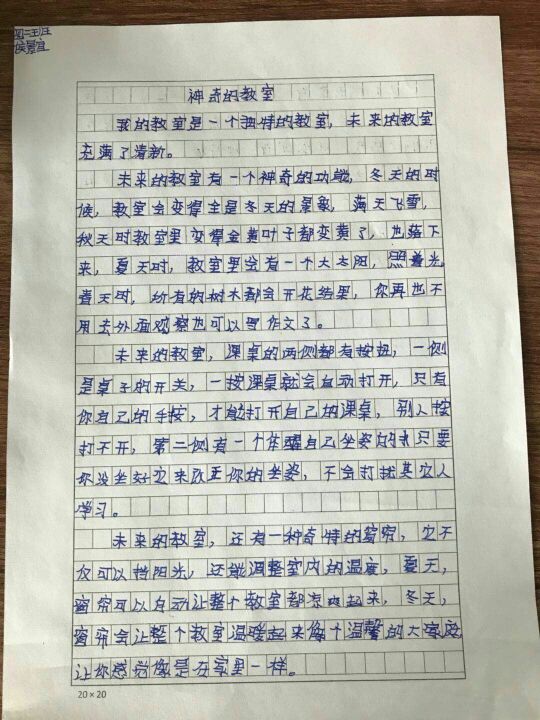 四二班
侯景宜
神奇的教室
我的教室是一个独特的教室，未来的教室
充满了清新。
未来的教室有一个神奇的功能，冬天的时
候，教室会变得全是冬天的景象，满天飞雪，
秋天时教室里变得金黄叶子都变黄了，也落下
来，夏天时，教室里会有一个大太阳，照着光
春天时，所有的树木都会开花结果，你再也不
用去外面观察也可以写作文了。
未来的教室，课桌的两侧都有按钮，一侧
是桌子的开关，一按课桌就会自动打开，只有
你自己的手按，才能打开自己的课桌，别人按
打不开，第二侧有一个体醒自己坐姿的只要
你没坐好它来改正你的坐姿，不会打扰其它人
学习。
未来的教室，还有一种奇特的窗帘，它不
仅可以挡阳光，还能调整室内的温度，夏天，
窗帘可以自动让整个教室都凉爽起来，冬天，
窗帘会让整个教室温暖起来像个温馨的大家庭
让你感觉像是在家里一样。
20×20